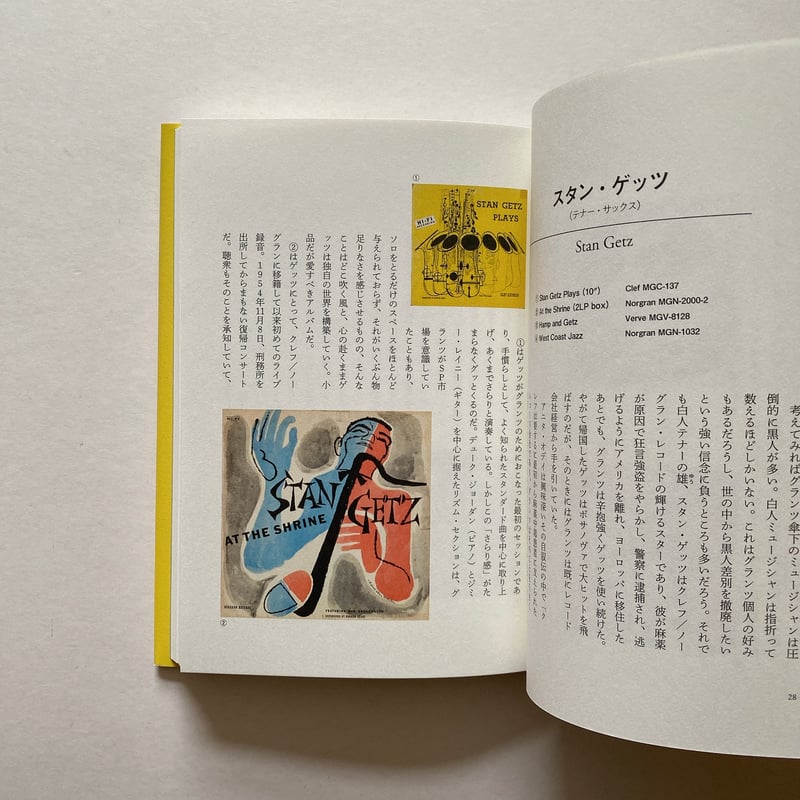 スタン・ゲッツ
（テナー・サックス）
Stan Getz
Stan Getz Plays (10") Clef MGC-137
At the Shrine (2LP box) Norgran MGN-2000-2
Hamp and Getz Verve MGV-8128
West Coast Jazz Norgran MGN-1032
考えてみればグランツ傘下のミュージシャンは圧
倒的に黒人が多い。白人ミュージシャンは指折って
数えるほどしかいない。これはグランツ個人の好み
もあるだろうし、世の中から黒人差別を撤廃したい
という強い信念に負うところも多いだろう。それで
も白人テナーの雄、スタン・ゲッツはクレフ／ノー
グラン・レコードの輝けるスターであり、彼が麻薬
が原因で狂言強盗をやらかし、警察に逮捕され、逃
げるようにアメリカを離れ、ヨーロッパに移住した
あとでも、グランツは辛抱強くゲッツを使い続けた。
やがて帰国したゲッツはボサノヴァで大ヒットを飛
ばすのだが、そのときにはグランツは既にレコード
会社経営から手を引いていた。
アニタ・オデイは興味深いその自叙伝の中で「ク
28
①
HI-FI
STAN GETZ
PLAYS
①はゲッツがグランツのためにおこなった最初のセッションであ
り、手慣らしとして、よく知られたスタンダード曲を中心に取り上
げ、あくまでさらりと演奏している。しかしこの「さらり感」がた
まらなくグッとくるのだ。デューク・ジョーダン（ピアノ）とジミ
ー・レイニー（ギター）を中心に据えたリズム・セクションは、グ
ランツがSP市
場を意識してい
たこともあり、
ソロをとるだけのスペースをほとんど
与えられておらず、それがいくぶん物
足りなさを感じさせるものの、そんな
ことはどこ吹く風と、心の赴くままゲ
ッツは独自の世界を構築していく。小
品だが愛すべきアルバムだ。
②はゲッツにとって、クレフ／ノー
グランに移籍して以来初めてのライブ
録音。1954年11月8日、刑務所を
出所してからまもない復帰コンサート
だ。聴衆もそのことを承知していて、
HI-FI
STAN GETZ
AT THE SHRINE
②